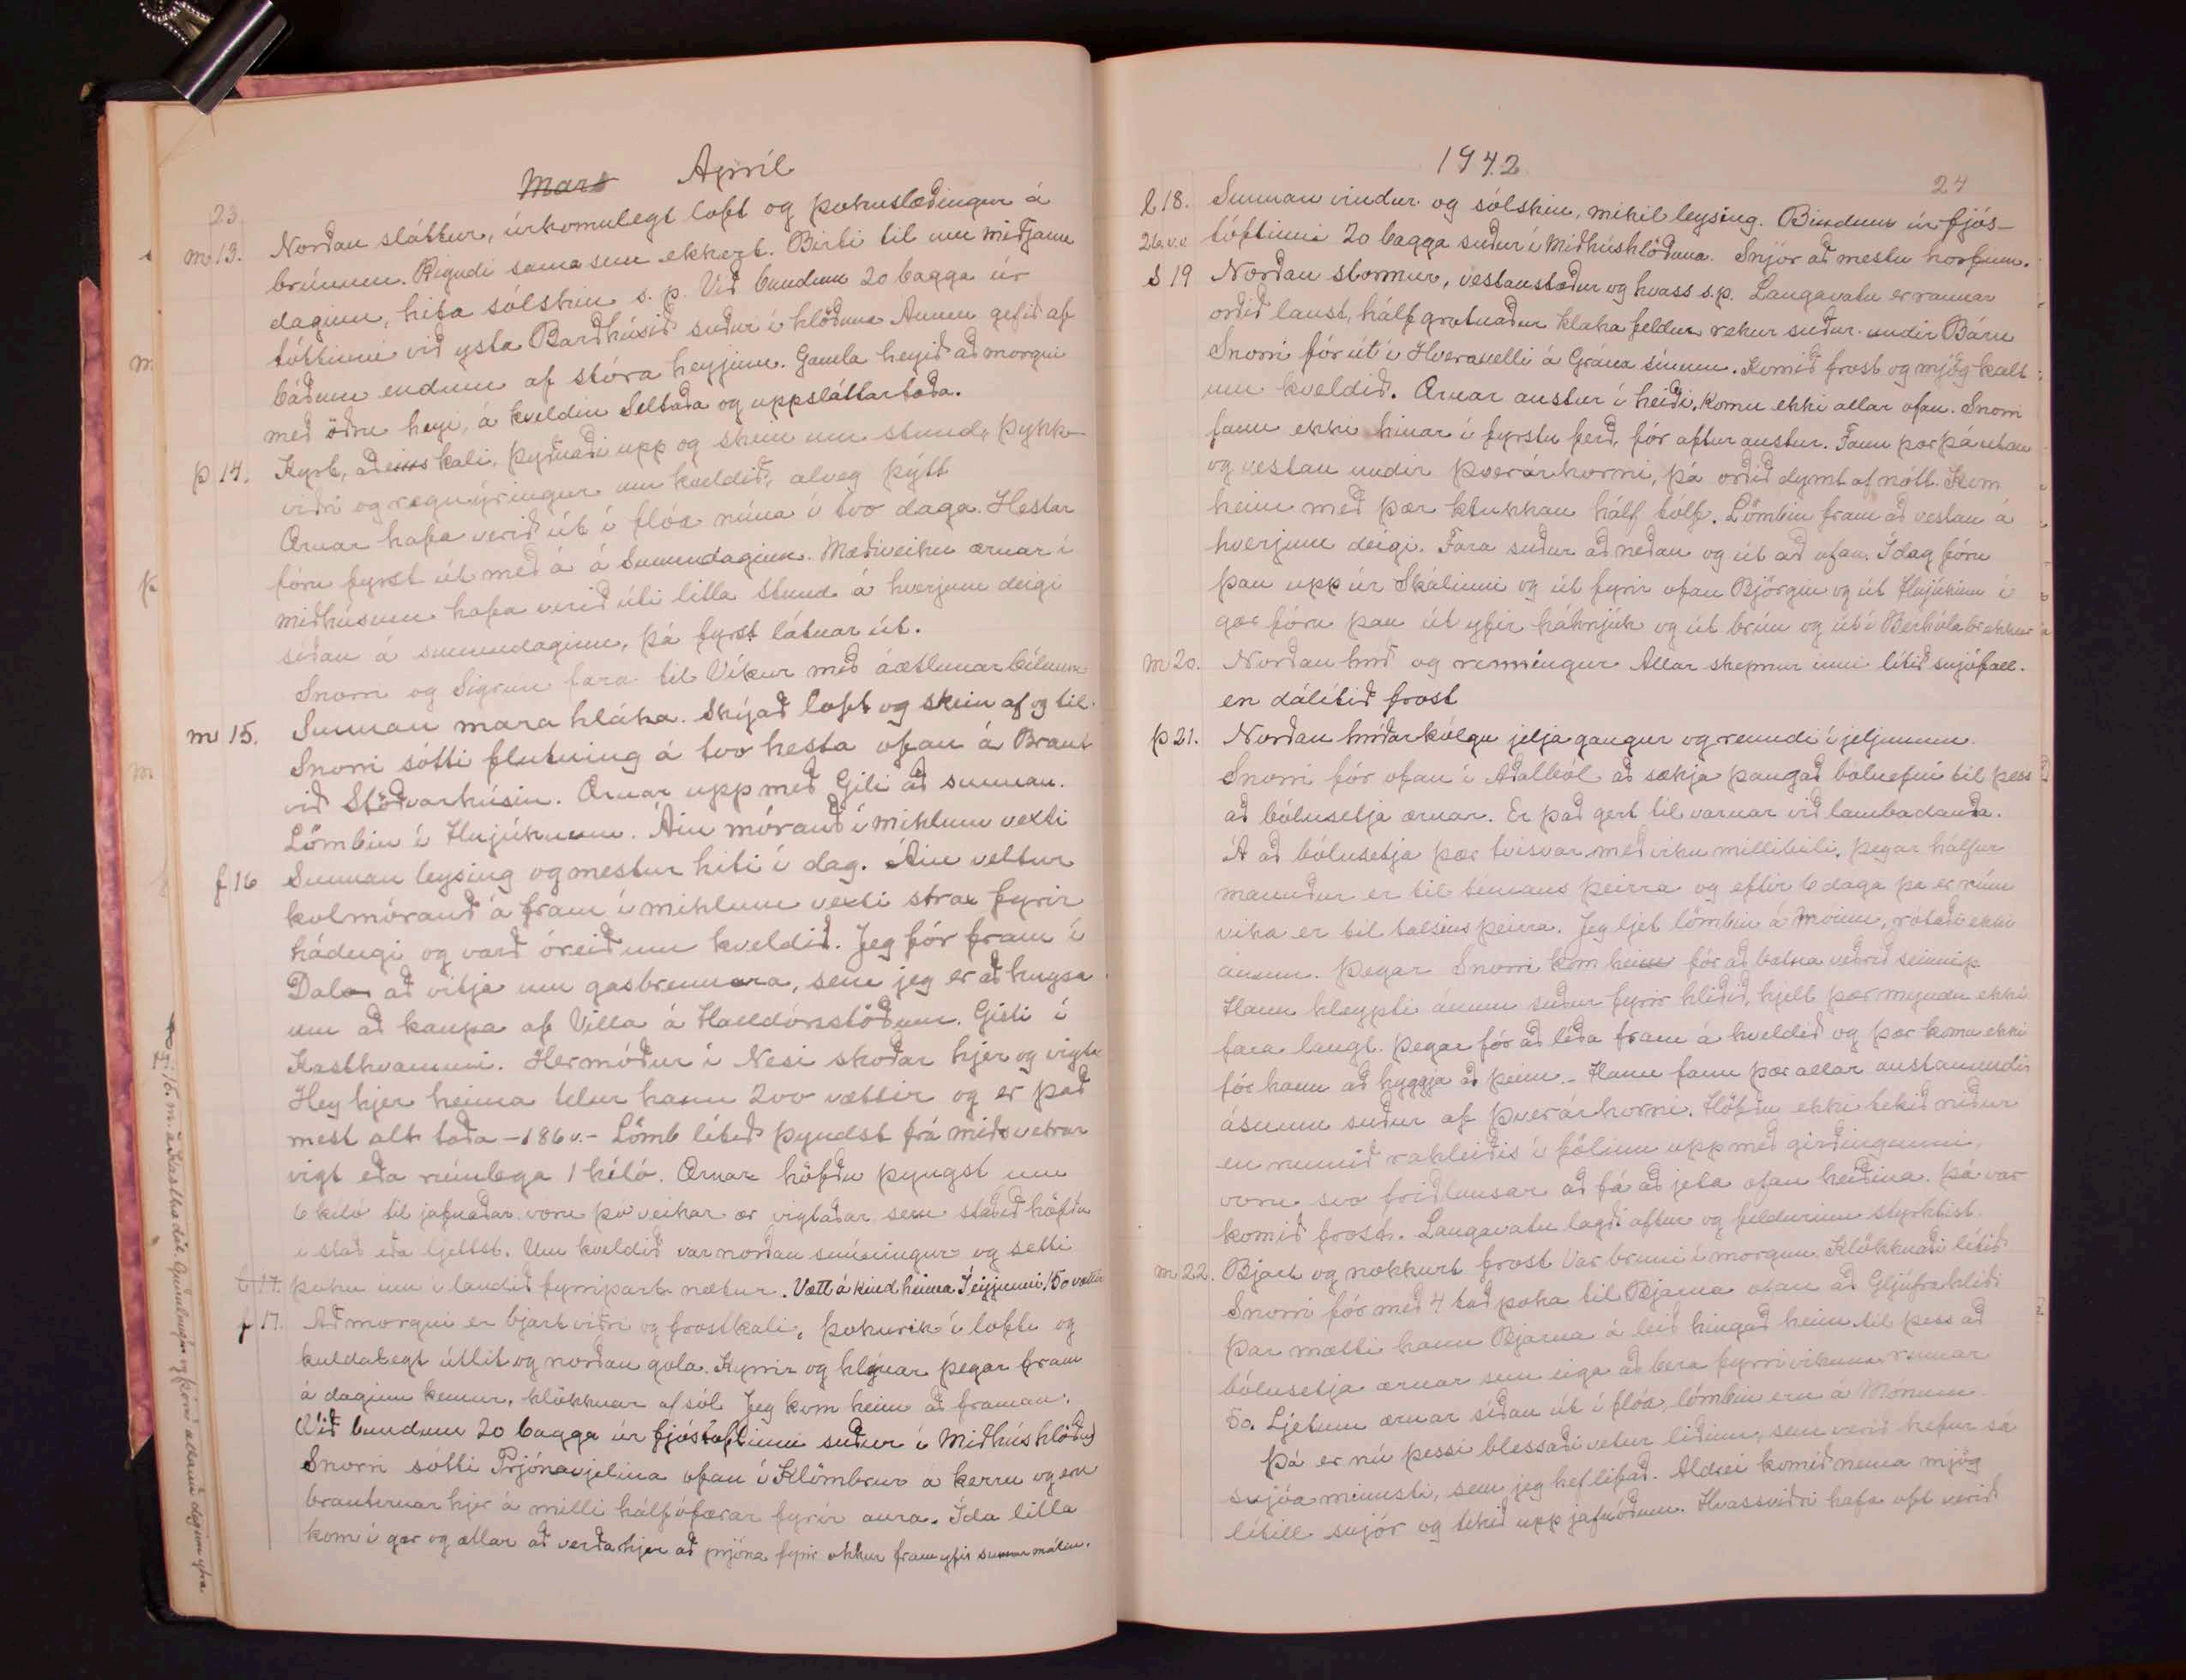 Mars Apríl
23
m 13. Norðan sláttur, úrkomulegt loft og þokuslæðingur á
brúnum. Rigndi sama sem ekkert. Birti til um miðjann
daginn, hita sólskin s.p. Við bundum 20 bagga úr
tóttinni við ysta Barðhúsið suður í hlöðuna Ánum gefið af
báðum endum af stóra heyjinu. Gamla heyið að morgni
með öðru heyi, á kveldin Seltaða og uppsláttartaða.
þ 14. Kyrt, aðeins kali, þyðnaði upp og skein um stund, þykk-
viðri og regnýringur um kveldið, alveg þýtt
Ærnar hafa verið út í flóa núna í tvo daga. Hestar
fóru fyrst út með á á Sunnudaginn. Mæðiveiku ærnar í
miðhúsum hafa verið úti litla stund á hverjum deigi
síðan á sunnudaginn, þá fyrst látnar út.
Snorri og Sigrún fara til Víkur með áætlunarbílnum
m 15. Sunnan mara hláka. Skýjað loft og skein af og til.
Snorri sótti flutning á tvo hesta ofan á Braut
við Stöðvarhúsin. Ærnar upp með Gili að sunnan.
Lömbin í Hnjúknum. Áin mórauð í miklum vexti
f 16 Sunnan leysing og mestur hiti í dag. Áin veltur
kolmórauð á fram í miklum vexti strax fyrir
hádegi og varð óreið um kveldið. Jeg fór fram í
Dala að vitja um gasbrennara, sem jeg er að hugsa
um að kaupa af Villa á Halldórsstöðum. Gisti í
Kasthvammi. Hermóður í Nesi skoðar hjer og vigta
Hey hjer heima telur hann 200 vættir og er það
mest alt taða - 186 v. - Lömb lítið þyndst frá miðsvetrar
vigt eða rúmlega 1 kíló. Ærnar höfðu þyngst um
6 kíló til jafnaðar voru þó veikar ær vigtaðar sem staðið höfðu
í stað eða ljettst. Um kveldið var norðan snúningur og setti
þoku inn í landið fyrripart nætur. Vætt á kind heima Í eyjunni 150 vættir
f 17. Að morgni er bjart viðri og frostkali, þokurek í lofti og
kuldalegt útlit og norðan gola. Kyrrir og hlýnar þegar fram
á daginn kemur, klökknar af sól Jeg kom heim að framan.
Við bundum 20 bagga úr fjóstóftinni suður í Miðhúshlöðu
Snorri sótti Prjónavjelina ofan í Klömbrur á kerru og eru
brautirnar hjer á milli hálf ófærar fyrir aura. Ída litla
kom í gær og ætlar að verða hjer að prjóna fyrir okkur fram yfir sumarmálin.
1942
24
l 18. Sunnan vindur og sólskin, mikil leysing. Bundum úr fjós-
26 v.v. tóftinni 20 bagga suður í Miðhúshlöðuna. Snjór að mestu horfinn.
S 19 Norðan stormur, vestanstæður og hvass s.p. Langavatn er rannar
orðið laust, hálf grotnaður klaka feldur rekur suður undir Báru
Snorri fór út í Hveravelli á Grána sínum. Komið frost og mjög kalt
um kveldið. Ærnar austur í heiði, komu ekki allar ofan. Snorri
fann ekki hinar í fyrstu ferð, fór aftur austur. Fann þær þá utan
og vestan undir Þverárhorni, þá orðið dymt af nótt. Kom
heim með þær klukkan hálf tólf. Lömbin fram að vestan á
hverjum deigi. Fara suður að neðan og út að ofan. Í dag fóru
þau upp úr Skálinni og út fyrir ofan Björgin og út Hnjúkinn í
gær fóru þau út yfir háhnjúk og út brún og út í
m 20. Norðan hríð og renningur Allar skepnur inni lítið snjófall.
en dálítið frost
þ 21. Norðan hríðarkólgu jelja gangur og renndi í jeljunum.
Snorri fór ofan í Aðalból að sækja þangað bóluefni til þess
að bólusetja ærnar. Er það gert til varnar við lambadauða.
Á að bólusetja þær tvisvar með viku millibili, þegar hálfur
mánuður er til tímans þeirra og eftir 6 daga þá er rúm
vika er til talsins þeirra. Jeg ljet lömbin á Móinn, rótaði ekki
ánum. Þegar Snorri kom heim fór að batna veðrið seinnip.
Hann hleypti ánum suður fyrir hliðið, hjelt þær myndu ekki
fara langt. Þegar fór að líða fram á kveldið og þær komu ekki
fór hann að hyggja að þeim. - Hann fann þær allar austanundir
ásunum suður af Þverárhorni. Höfðu ekki tekið niður
en runnið rakleiðis í fölinu upp með girðingunni,
voru svo friðlausar að fá að jeta ofan heiðina. Þá var
komið frost. Langavatn lagði aftur og feldurinn styrktist.
m 22. Bjart og nokkurt frost Var bruni í morgun. Klökknaði lítið
Snorri fór með 4 tað poka til Bjarna ofan að Gljúfrahliði
Þar mætti hann Bjarna á leið hingað heim til þess að
bólusetja ærnar sem eiga að bera fyrri vikuna rúmar
50. Ljetum ærnar síðan út í flóa, lömbin eru á Mónum
Þá er nú þessi blessaði vetur liðinn, sem verið hefur sá
snjóa minnsti, sem jeg hef lifað. Aldrei komið nema mjög
lítill snjór og tekið upp jafnóðum. Hvassviðri hafa oft verið